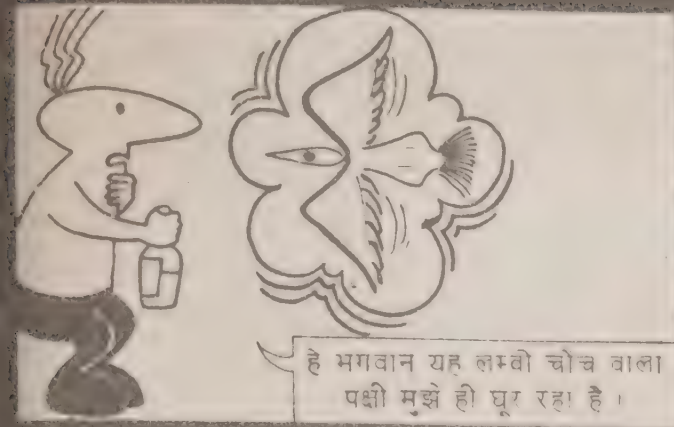 हे भगवान यह लम्बी चोंच वाला
पक्षी मुझे ही घूर रहा है ।